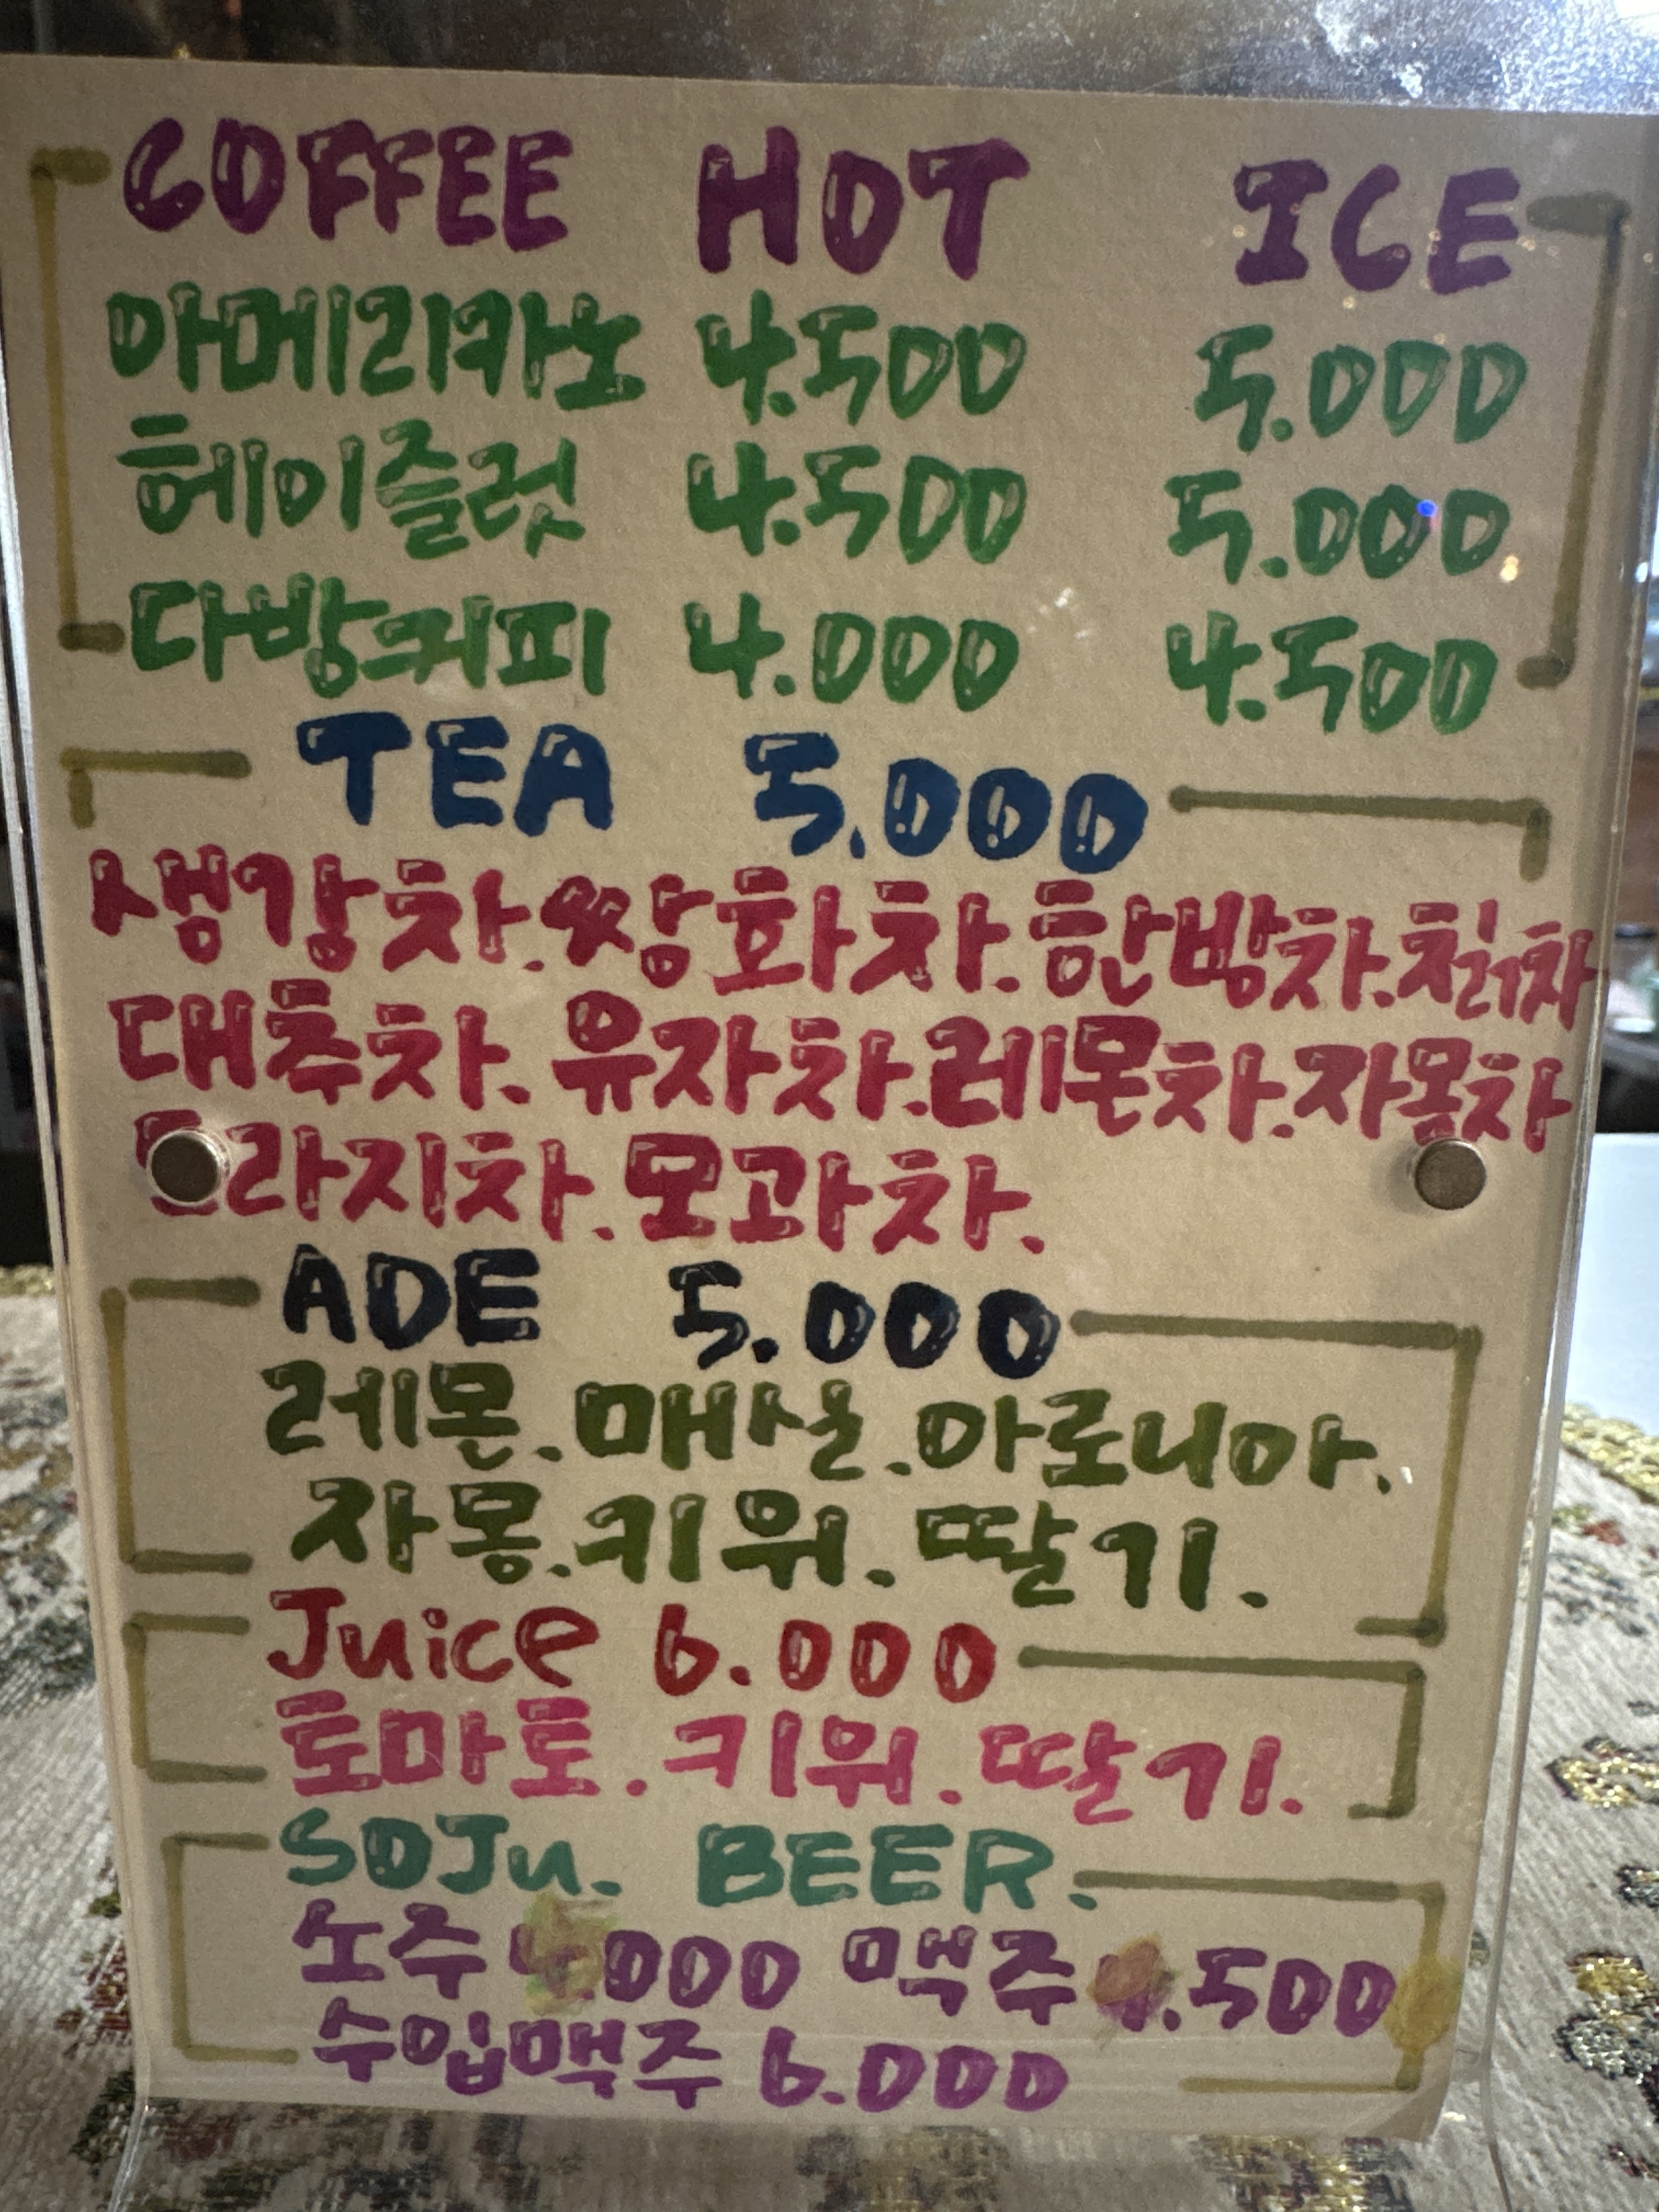 COFFEE HOT ICE
아메리카노 4.500 5.000
헤이즐럿 4.500 5.000
다방커피 4.000 4.500
TEA 5.000
생강차.쌍화차.한방차.칡차
대추차.유자차.레몬차.자몽차
도라지차.모과차.
ADE 5.000
레몬.매실.아로니아.
자몽.키위.딸기.
Juice 6.000
토마토.키위.딸기.
SOJu. BEER.
소주 맥주
수입맥주 6.000